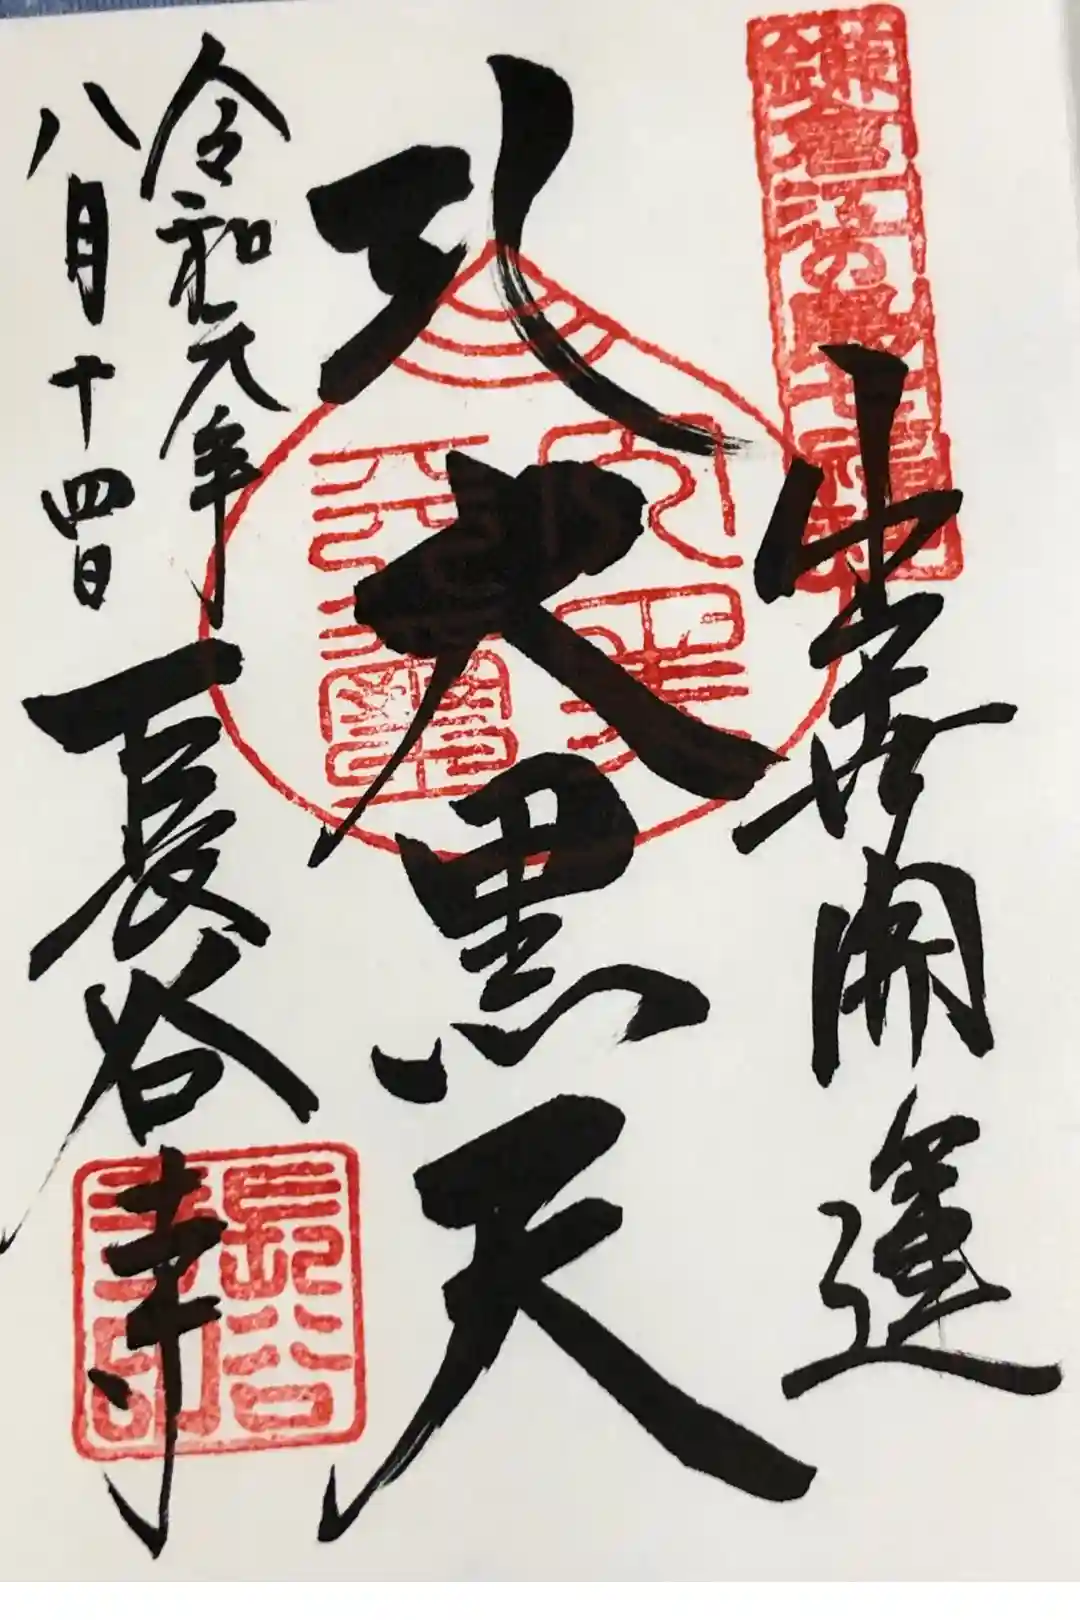 鎌倉江の島七福神
出世開運
弘大黒天
令和元年
八月十四日
長谷寺
長谷寺印